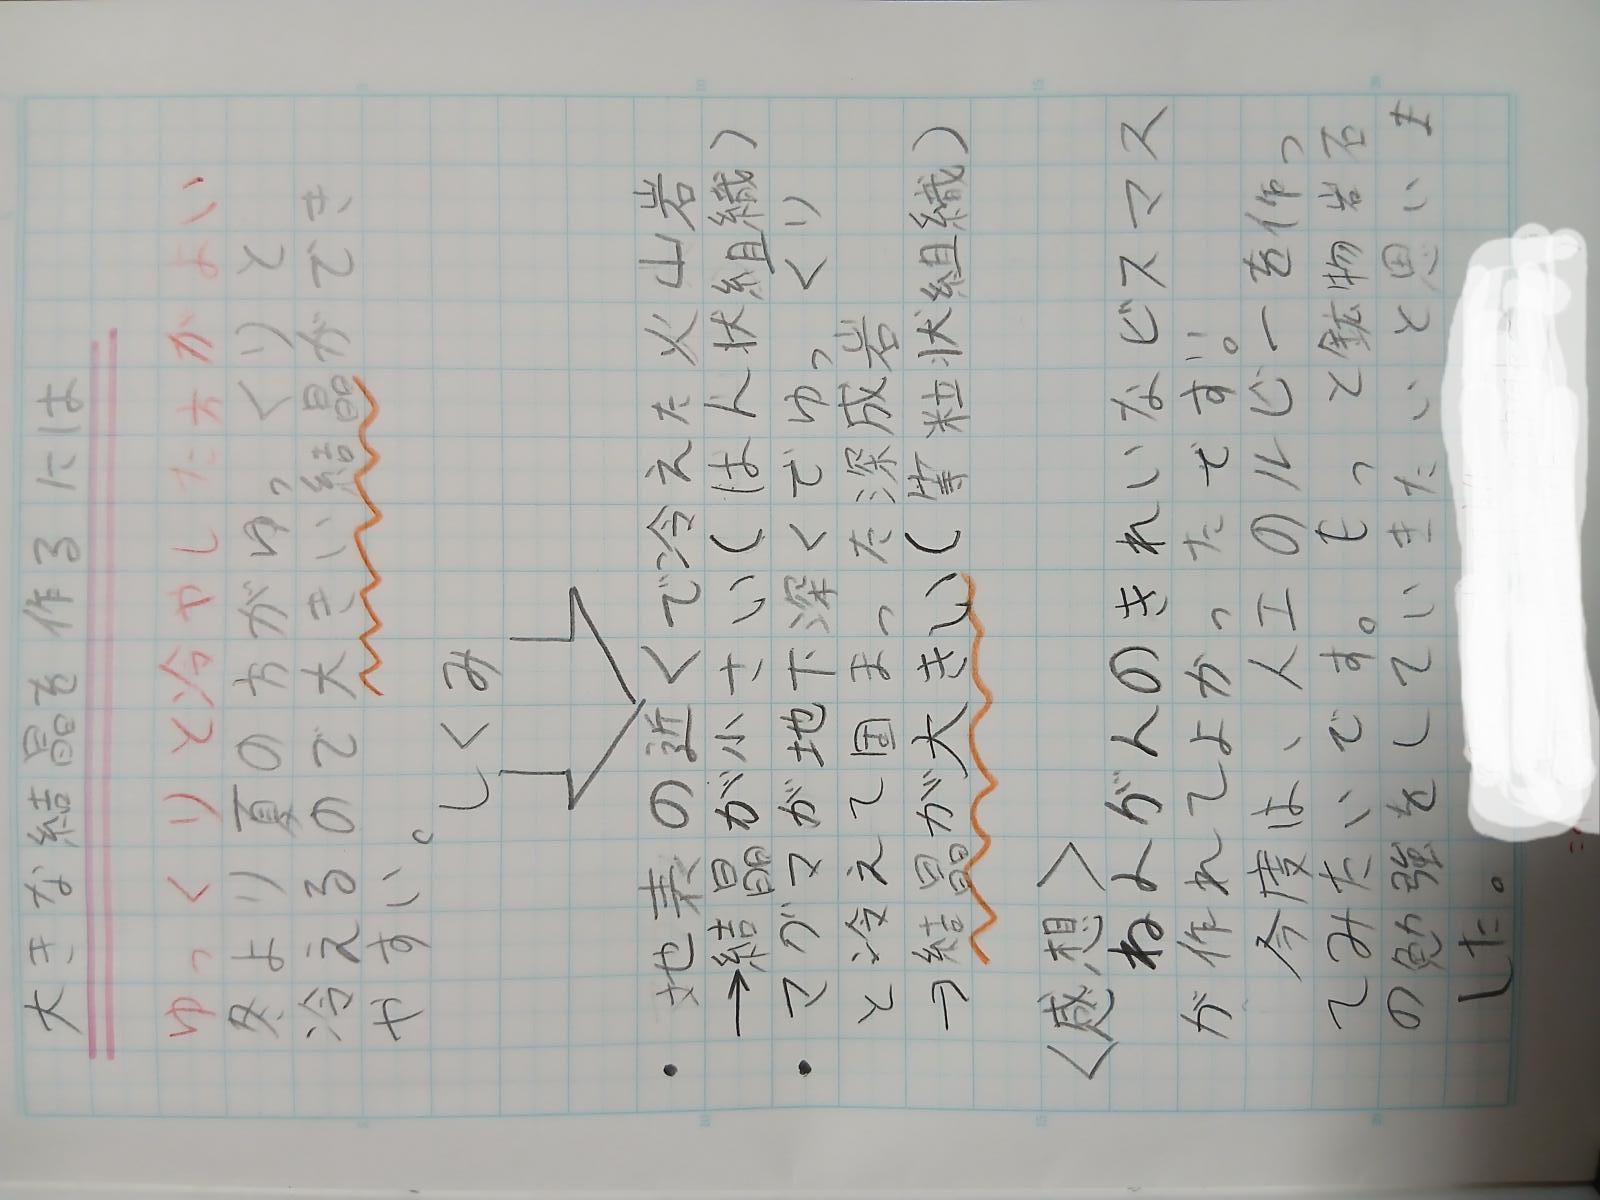 大きな結晶を作るには
ゆっくりと冷やした方がよい
冬より夏の方がゆっくりと
冷えるので大きい結晶ができ
やすい。
しくみ
・地表の近くで冷えた火山岩
→結晶が小さい(はん状組織)
・マグマが地下深くでゆっくり
と冷えて固まった深成岩
→結晶が大きい(等粒状組織)
<感想>
ねよがんのきれいなビスマス
が作れてよかったです!!。
今度は、人工のルビーを作っ
てみたいです。もって鉱物岩石
の勉強をしていきたいと思いま
した。
5
10
15
20
5
10
15
20